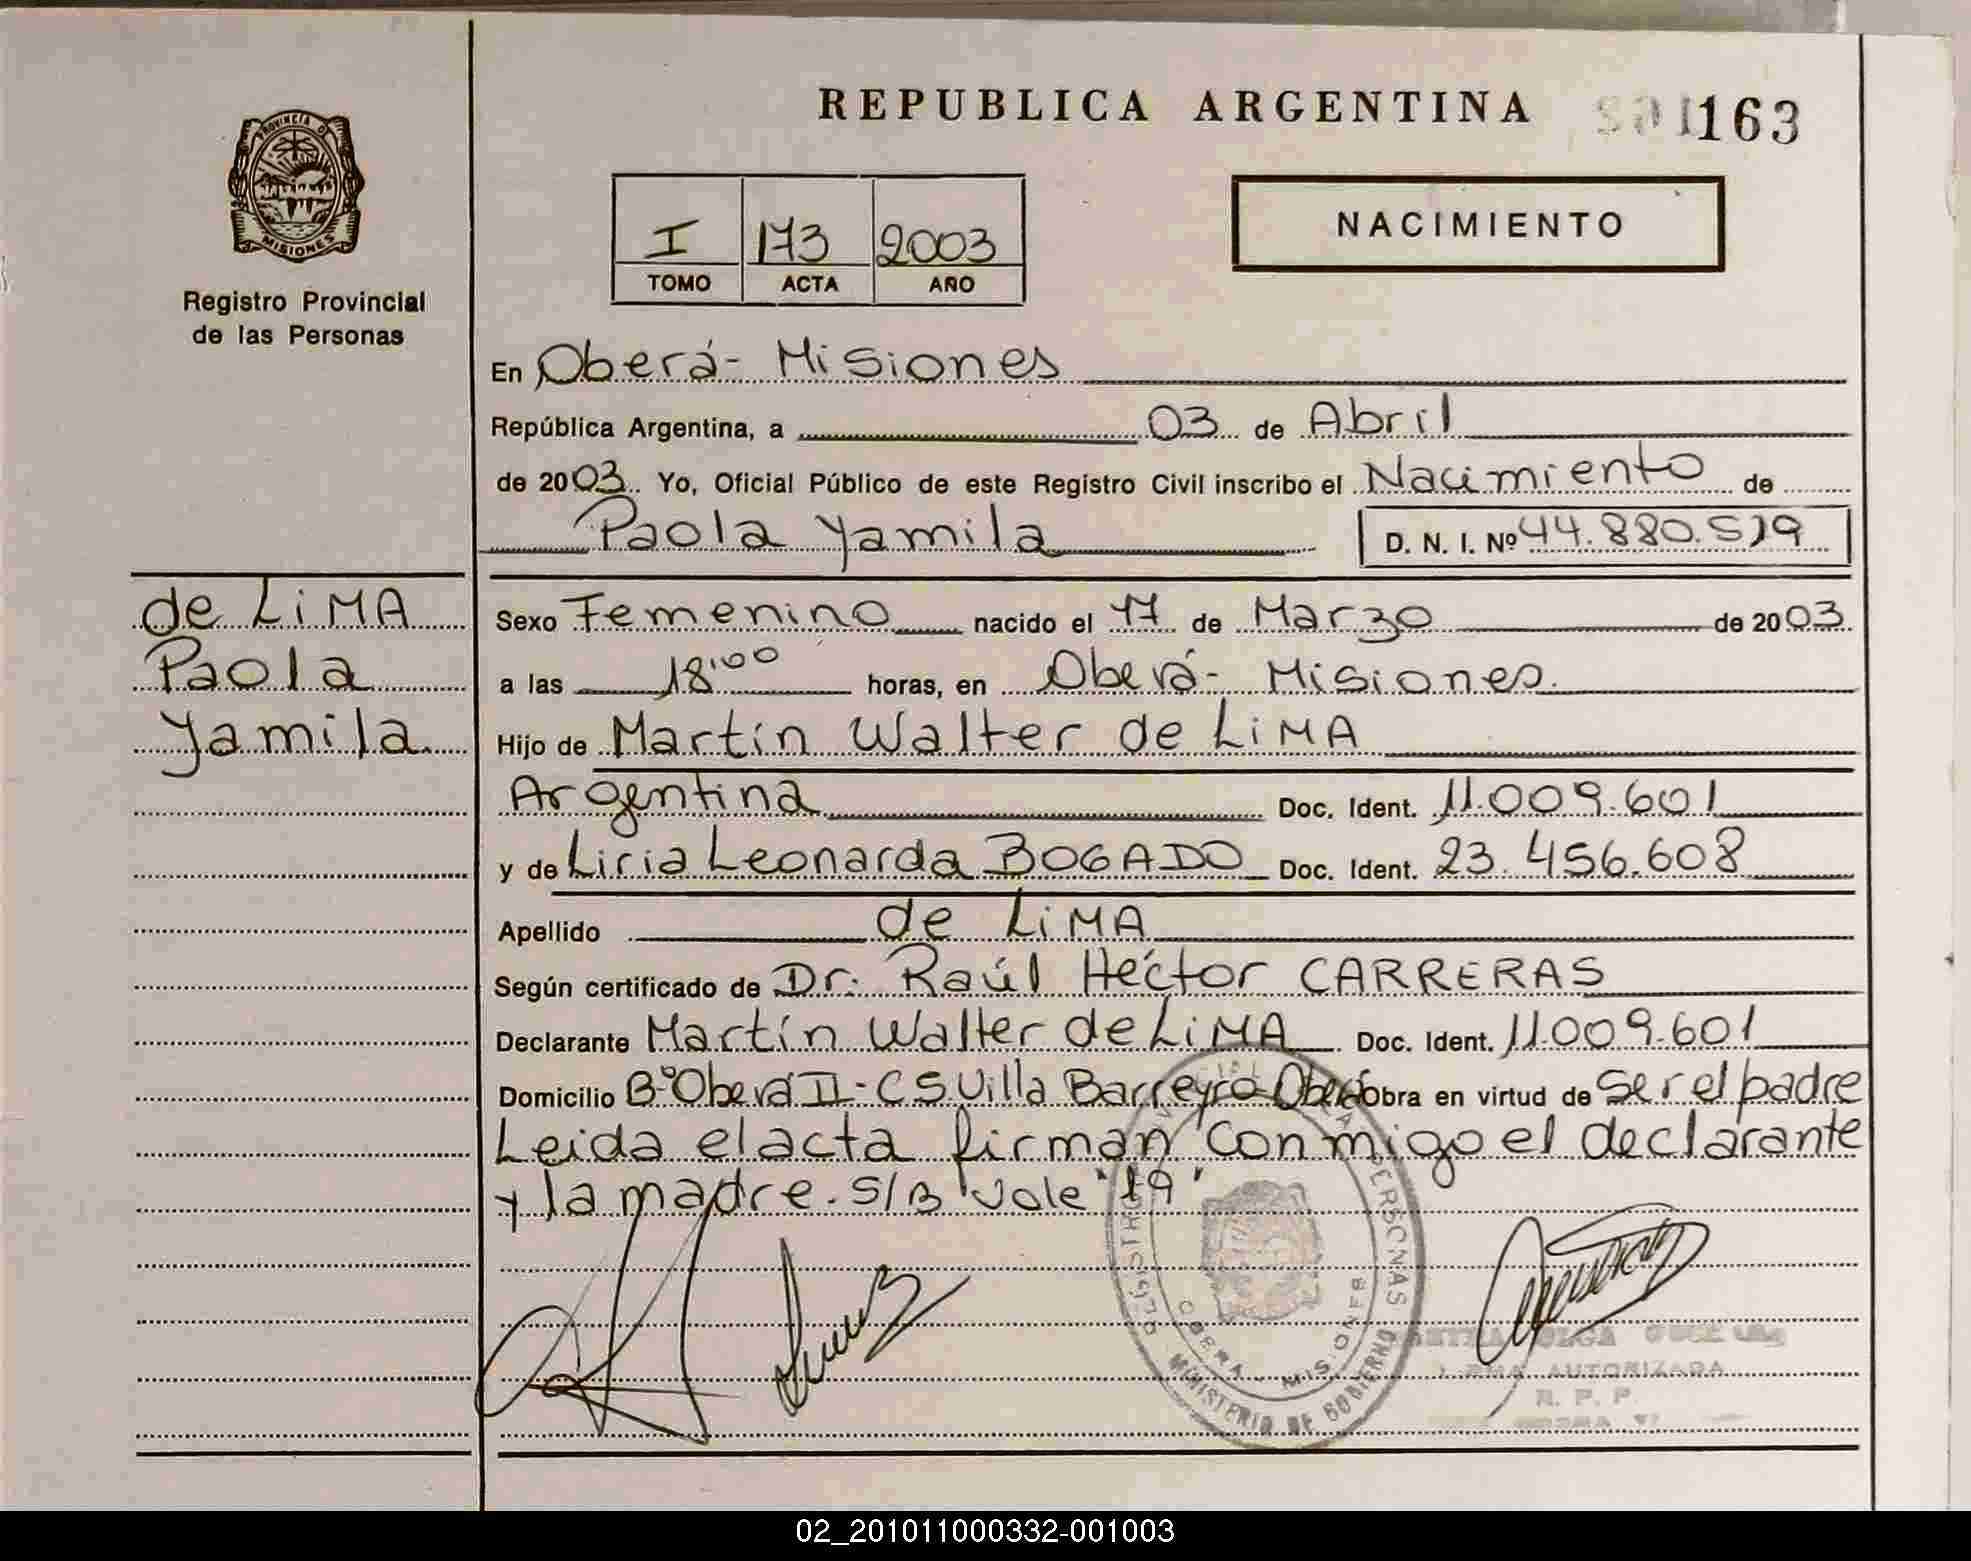 REPUBLICA ARGENTINA
163
PROVINCIA DE
MISIONES
Registro Provincial
de las Personas
I 173 2003
TOMO ACTA AÑO
NACIMIENTO
En Oberá- Misiones
República Argentina, a 03 de Abril
de 2003. Yo, Oficial Público de este Registro Civil inscribo el Nacimiento de
Paola Yamila D. N. I. Nº 44.880.519
de LiMA
Paola
Yamila
Sexo Femenino nacido el 17 de Marzo de 2003
a las 18:00 horas, en Oberá- Misiones.
Hijo de Martín Walter de LiMA
Argentina Doc. Ident. 11.009.601
y de Liria Leonarda BOGADO Doc. Ident. 23.456.608
Apellido de LiMA
Según certificado de Dr. Raúl Héctor CARRERAS
Declarante Martín Walter de LiMA Doc. Ident. 11.009.601
Domicilio Bº Oberá II-CS Villa Barreyro-Oberá Obra en virtud de Ser el padre
Leida el acta firman conmigo el declarante
y la madre. S/B "vale" 19"
PERSONAS
OBERA - MISIONES
MINISTERIO DE GOBIERNO
OLGA
AUTORIZADA
R. P. P.
02_201011000332-001003